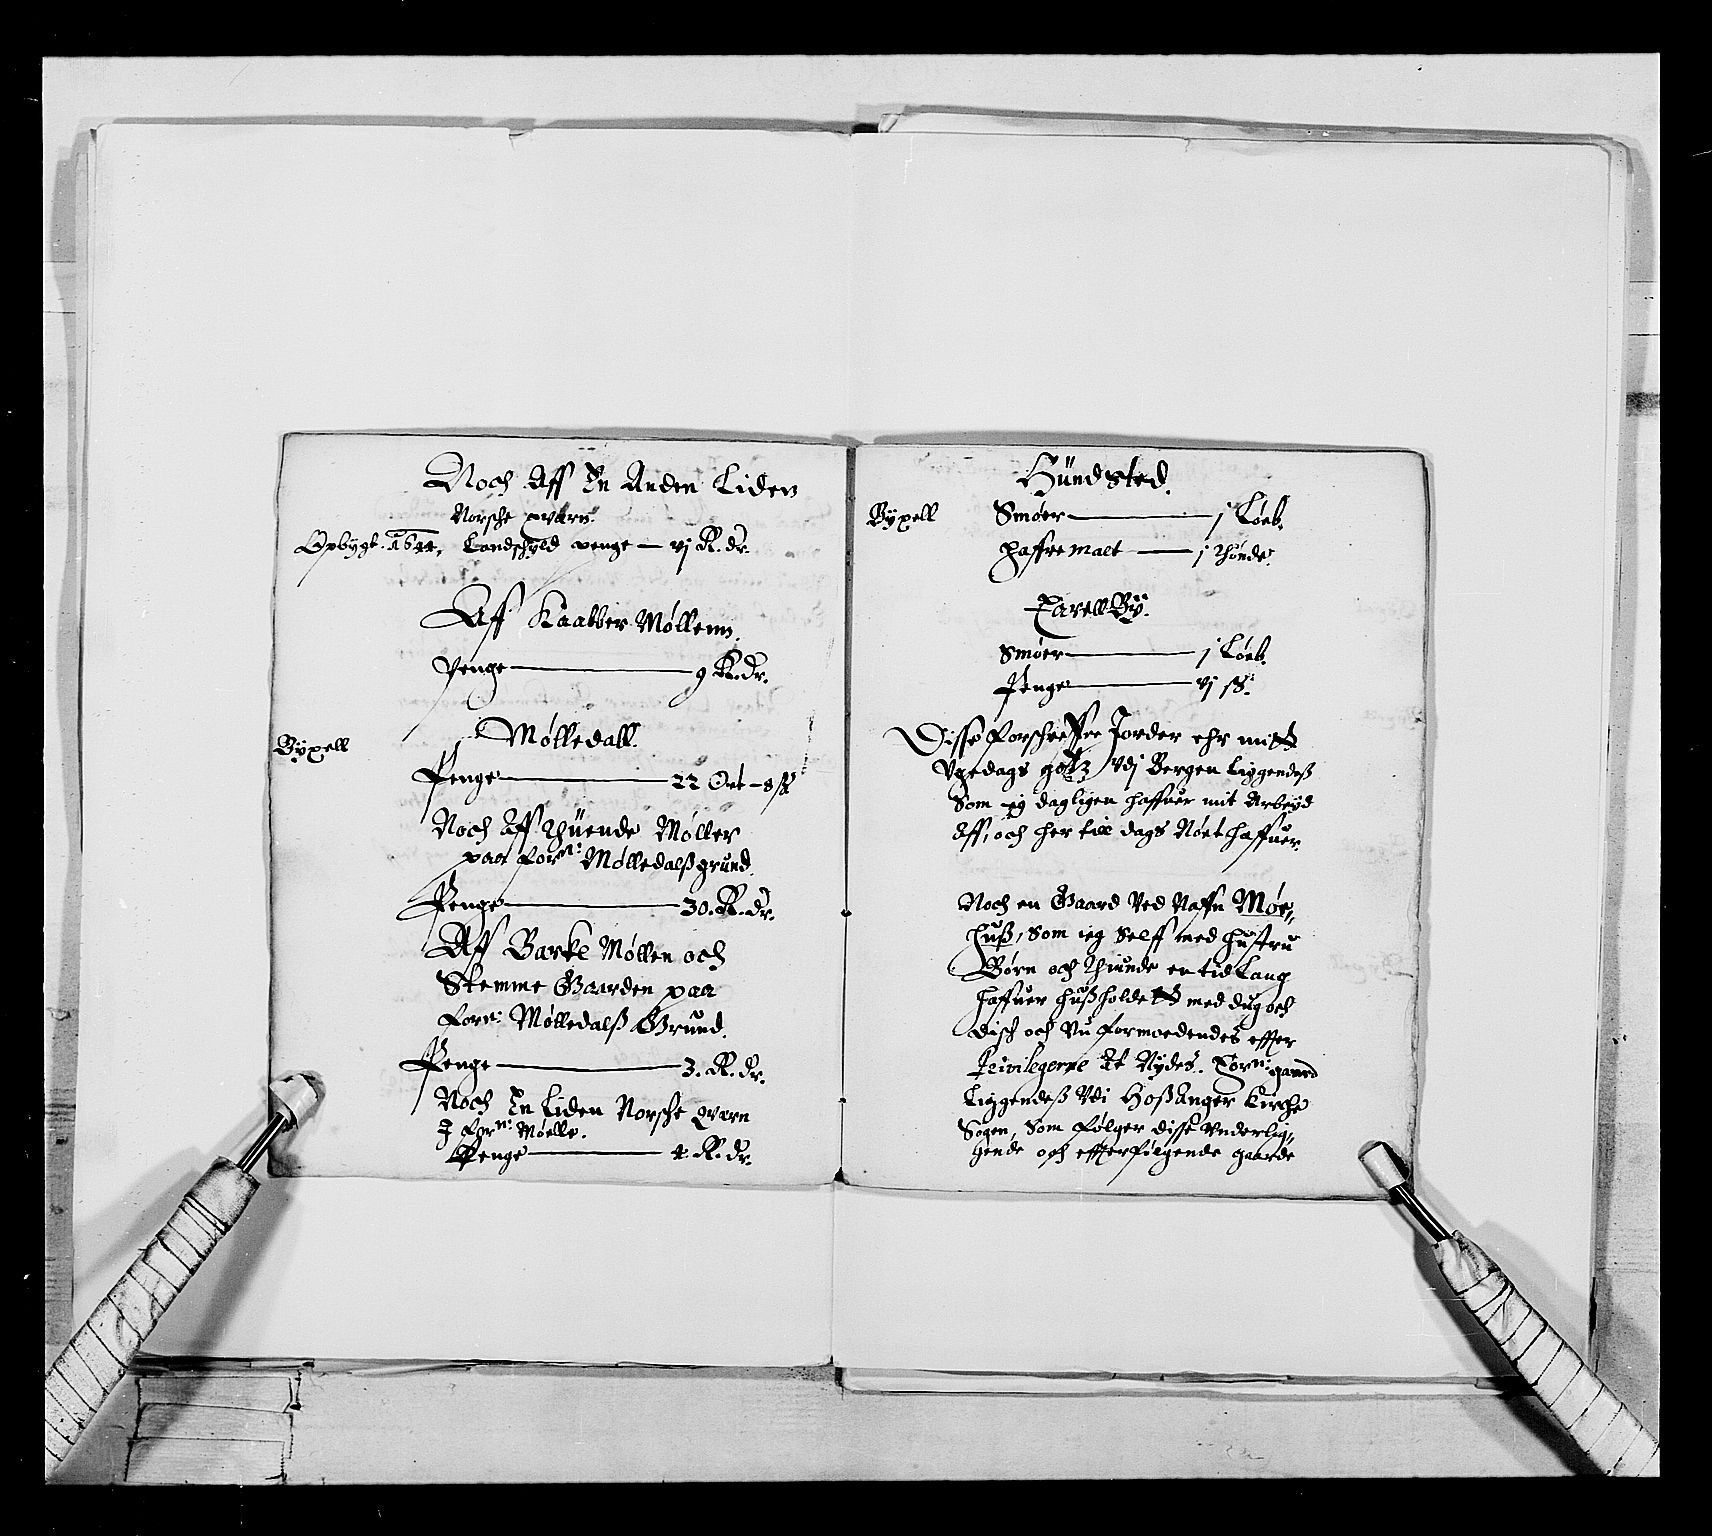 Noch Aff En Anden Liden
Norsche qvarn.
Opbygt. 1644, Landschyld penge — vj R. dr.
Aff Kaabber Møllenn.
Penge — 9 R. dr.
Bÿxell
Mølledall.
Penge — 22 Ort – 8 ß
Noch Aff Thüende Møller
paa forn: Mølledalß grund.
Penge — 30. R. dr.
Aff Barke Møllen och
Stemme Gaarden paa
forn: Mølledalß Grund.
Penge — 3. R. dr.
Noch En Liden Norsche Qvarn
J forn: Møelle.
Penge — 4. R. dr.
Hündsted.
Bÿxell
Smøer — j Løeb.
Haffre malt — j Thønde.
Smøer — j Løeb.
Penge — vj ß.
Disse forschreffne Jorder ehr mitt
Vgedags gotz Vdj Bergen Liggendeß
Som ieg dagligen haffuer mit Arbeyd
Aff, och her till dags Nøet haffuer.
Noch en Gaard Ved Naffn Møe,,
huß, Som ieg Selff med hustru
Børn och Thiunde en tid Lang
haffuer hußholdett med dug och
disch och Nu formoedendes effter
Privilegerne At Nydes. Forn: gaard
Liggendeß Vdi Hoßanger Kirche
Sogen, Som følger disse Vnderlig,,
gende och effterfølgende gaarde